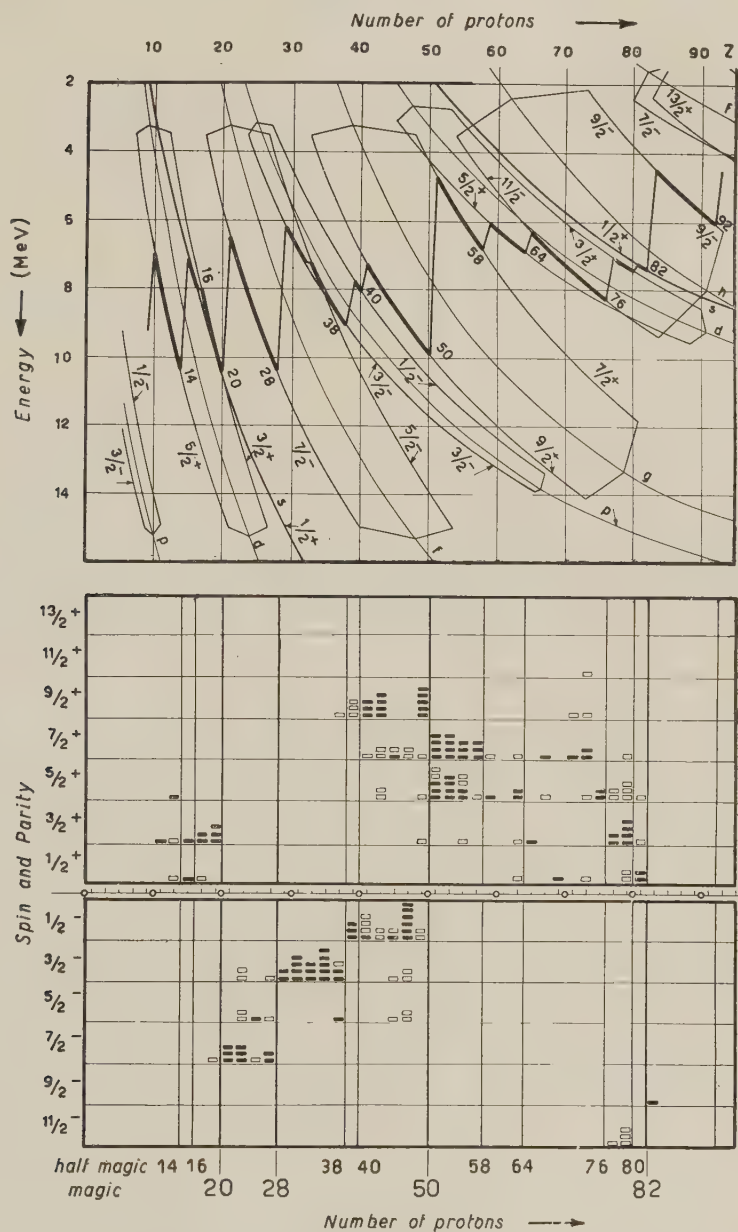 Number of protons
10 20 30 40 50 60 70 80 90 Z
2
4
6
8
10
12
14
Energy (MeV)
13/2+
f
7/2-
9/2-
11/2-
5/2+
1/2+
3/2+
92
9/2-
82
58
64
76
h
s
d
16
14
20
28
38
40
50
1/2-
3/2-
p
5/2+
d
3/2+
s
1/2+
7/2-
f
5/2-
3/2-
1/2-
3/2-
9/2+
7/2+
g
p
Spin and Parity
13/2+
11/2+
9/2+
7/2+
5/2+
3/2+
1/2+
1/2-
3/2-
5/2-
7/2-
9/2-
11/2-
half magic 14 16 38 40 58 64 76 80
magic 20 28 50 82
Number of protons